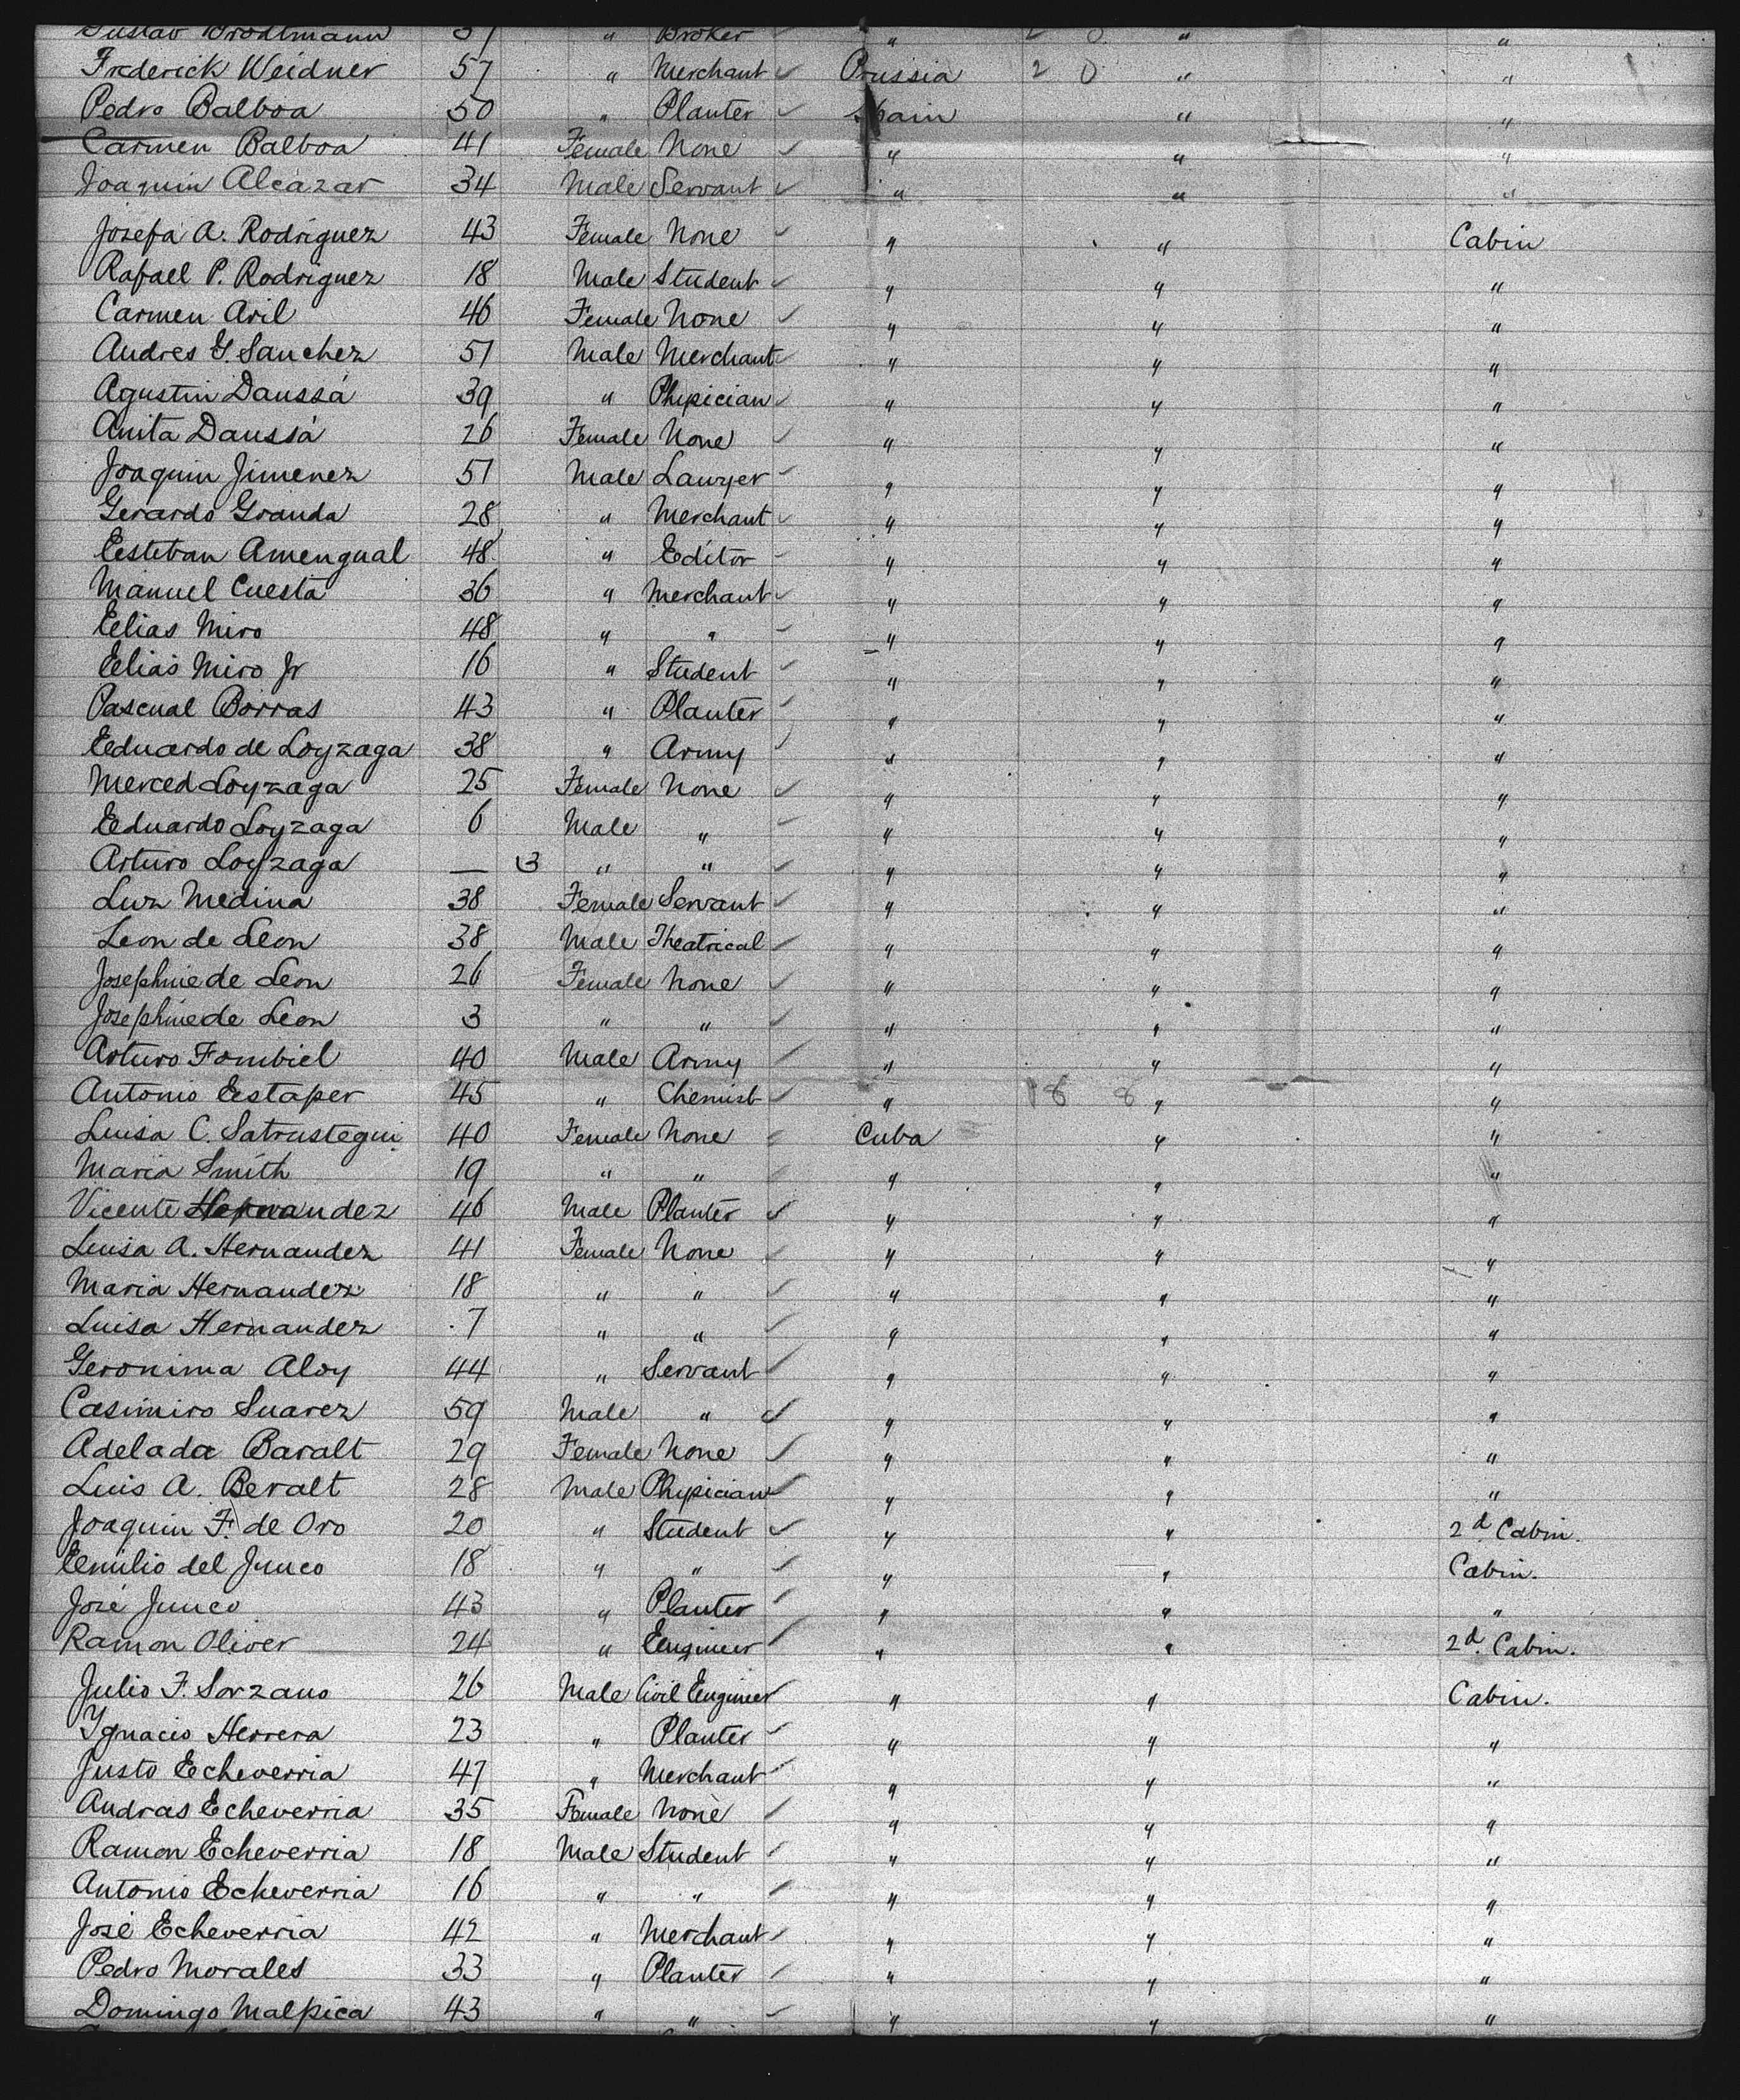 Gustav Brodtmann 37 " Broker " 2 0 " "
Frederick Weidner 57 " Merchant Prussia 2 0 " "
Pedro Balboa 50 " Planter Spain " "
Carmen Balboa 41 Female None " " "
Joaquin Alcazar 34 Male Servant " " "
Josefa A. Rodriguez 43 Female None " " Cabin
Rafael P. Rodriguez 18 Male Student " " "
Carmen Aril 46 Female None " " "
Andres G. Sanchez 51 Male Merchant " " "
Agustin Daussá 39 " Physician " " "
Anita Daussá 26 Female None " " "
Joaquin Jimenez 51 Male Lawyer " " "
Gerardo Granda 28 " Merchant " " "
Eesteban Amengual 48 " Editor " " "
Manuel Cuesta 36 " Merchant " " "
Eelias Miro 48 " " " " "
Eelias Miro Jr 16 " Student " " "
Pascual Borras 43 " Planter " " "
Eeduardo de Loyzaga 38 " Army " " "
Merced Loyzaga 25 Female None " " "
Eeduardo Loyzaga 6 Male " " " "
Arturo Loyzaga — 3 " " " " "
Luz Medina 38 Female Servant " " "
Leon de Leon 38 Male Theatrical " " "
Josephine de Leon 26 Female None " " "
Josephine de Leon 3 " " " " "
Arturo Fombiel 40 Male Army " " "
Antonio Eestaper 45 " Chemist " 18 8 " "
Luisa C. Satrustegui 40 Female None Cuba " "
Maria Smith 19 " " " " "
Vicente Hernandez 46 Male Planter " " "
Luisa A. Hernandez 41 Female None " " "
Maria Hernandez 18 " " " " "
Luisa Hernandez 7 " " " " "
Geronima Aloy 44 " Servant " " "
Casimiro Suarez 59 Male " " " "
Adelada Baralt 29 Female None " " "
Luis A. Beralt 28 Male Physician " " "
Joaquin F. de Oro 20 " Student " " 2d Cabin.
Eemilio del Junco 18 " " " " Cabin.
José Junco 43 " Planter " " "
Ramon Oliver 24 " Engineer " " 2d Cabin.
Julio F. Sorzano 26 Male Civil Engineer " " Cabin.
Ygnacio Herrera 23 " Planter " " "
Justo Echeverria 47 " Merchant " " "
Andras Echeverria 35 Female None " " "
Ramon Echeverria 18 Male Student " " "
Antonio Echeverria 16 " " " " "
José Echeverria 42 " Merchant " " "
Pedro Morales 33 " Planter " " "
Domingo Malpica 43 " " " " "